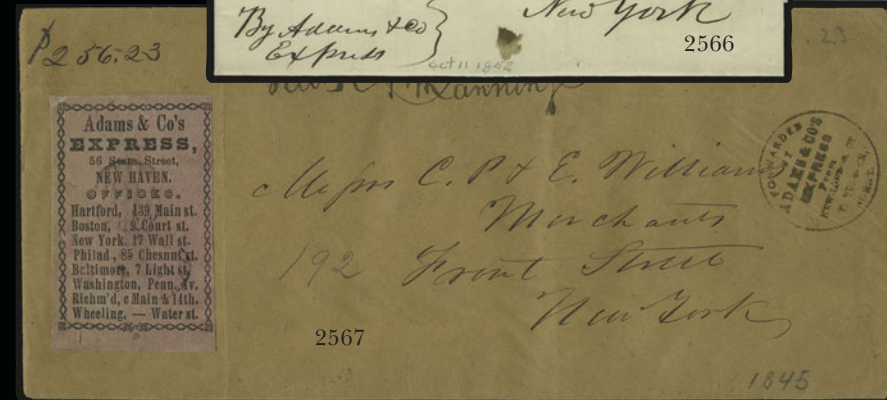 By Adams & Co
Express
New York
Oct 11 1852
2566
$256.23
.23
Adams & Co's
EXPRESS,
56 State Street,
NEW HAVEN.
OFFICES.
Hartford, 139 Main st.
Boston, 9 Court st.
New York. 17 Wall st.
Philad., 85 Chesnut st.
Baltimore, 7 Light st,
Washington, Penn. Av.
Richm'd, c Main & 14th.
Wheeling, — Water st.
Messrs C. P & E. Williams
Merchants
192 Front Street
New York
FORWARDED
BY
ADAMS & CO'S
EXPRESS
From
2567
1845